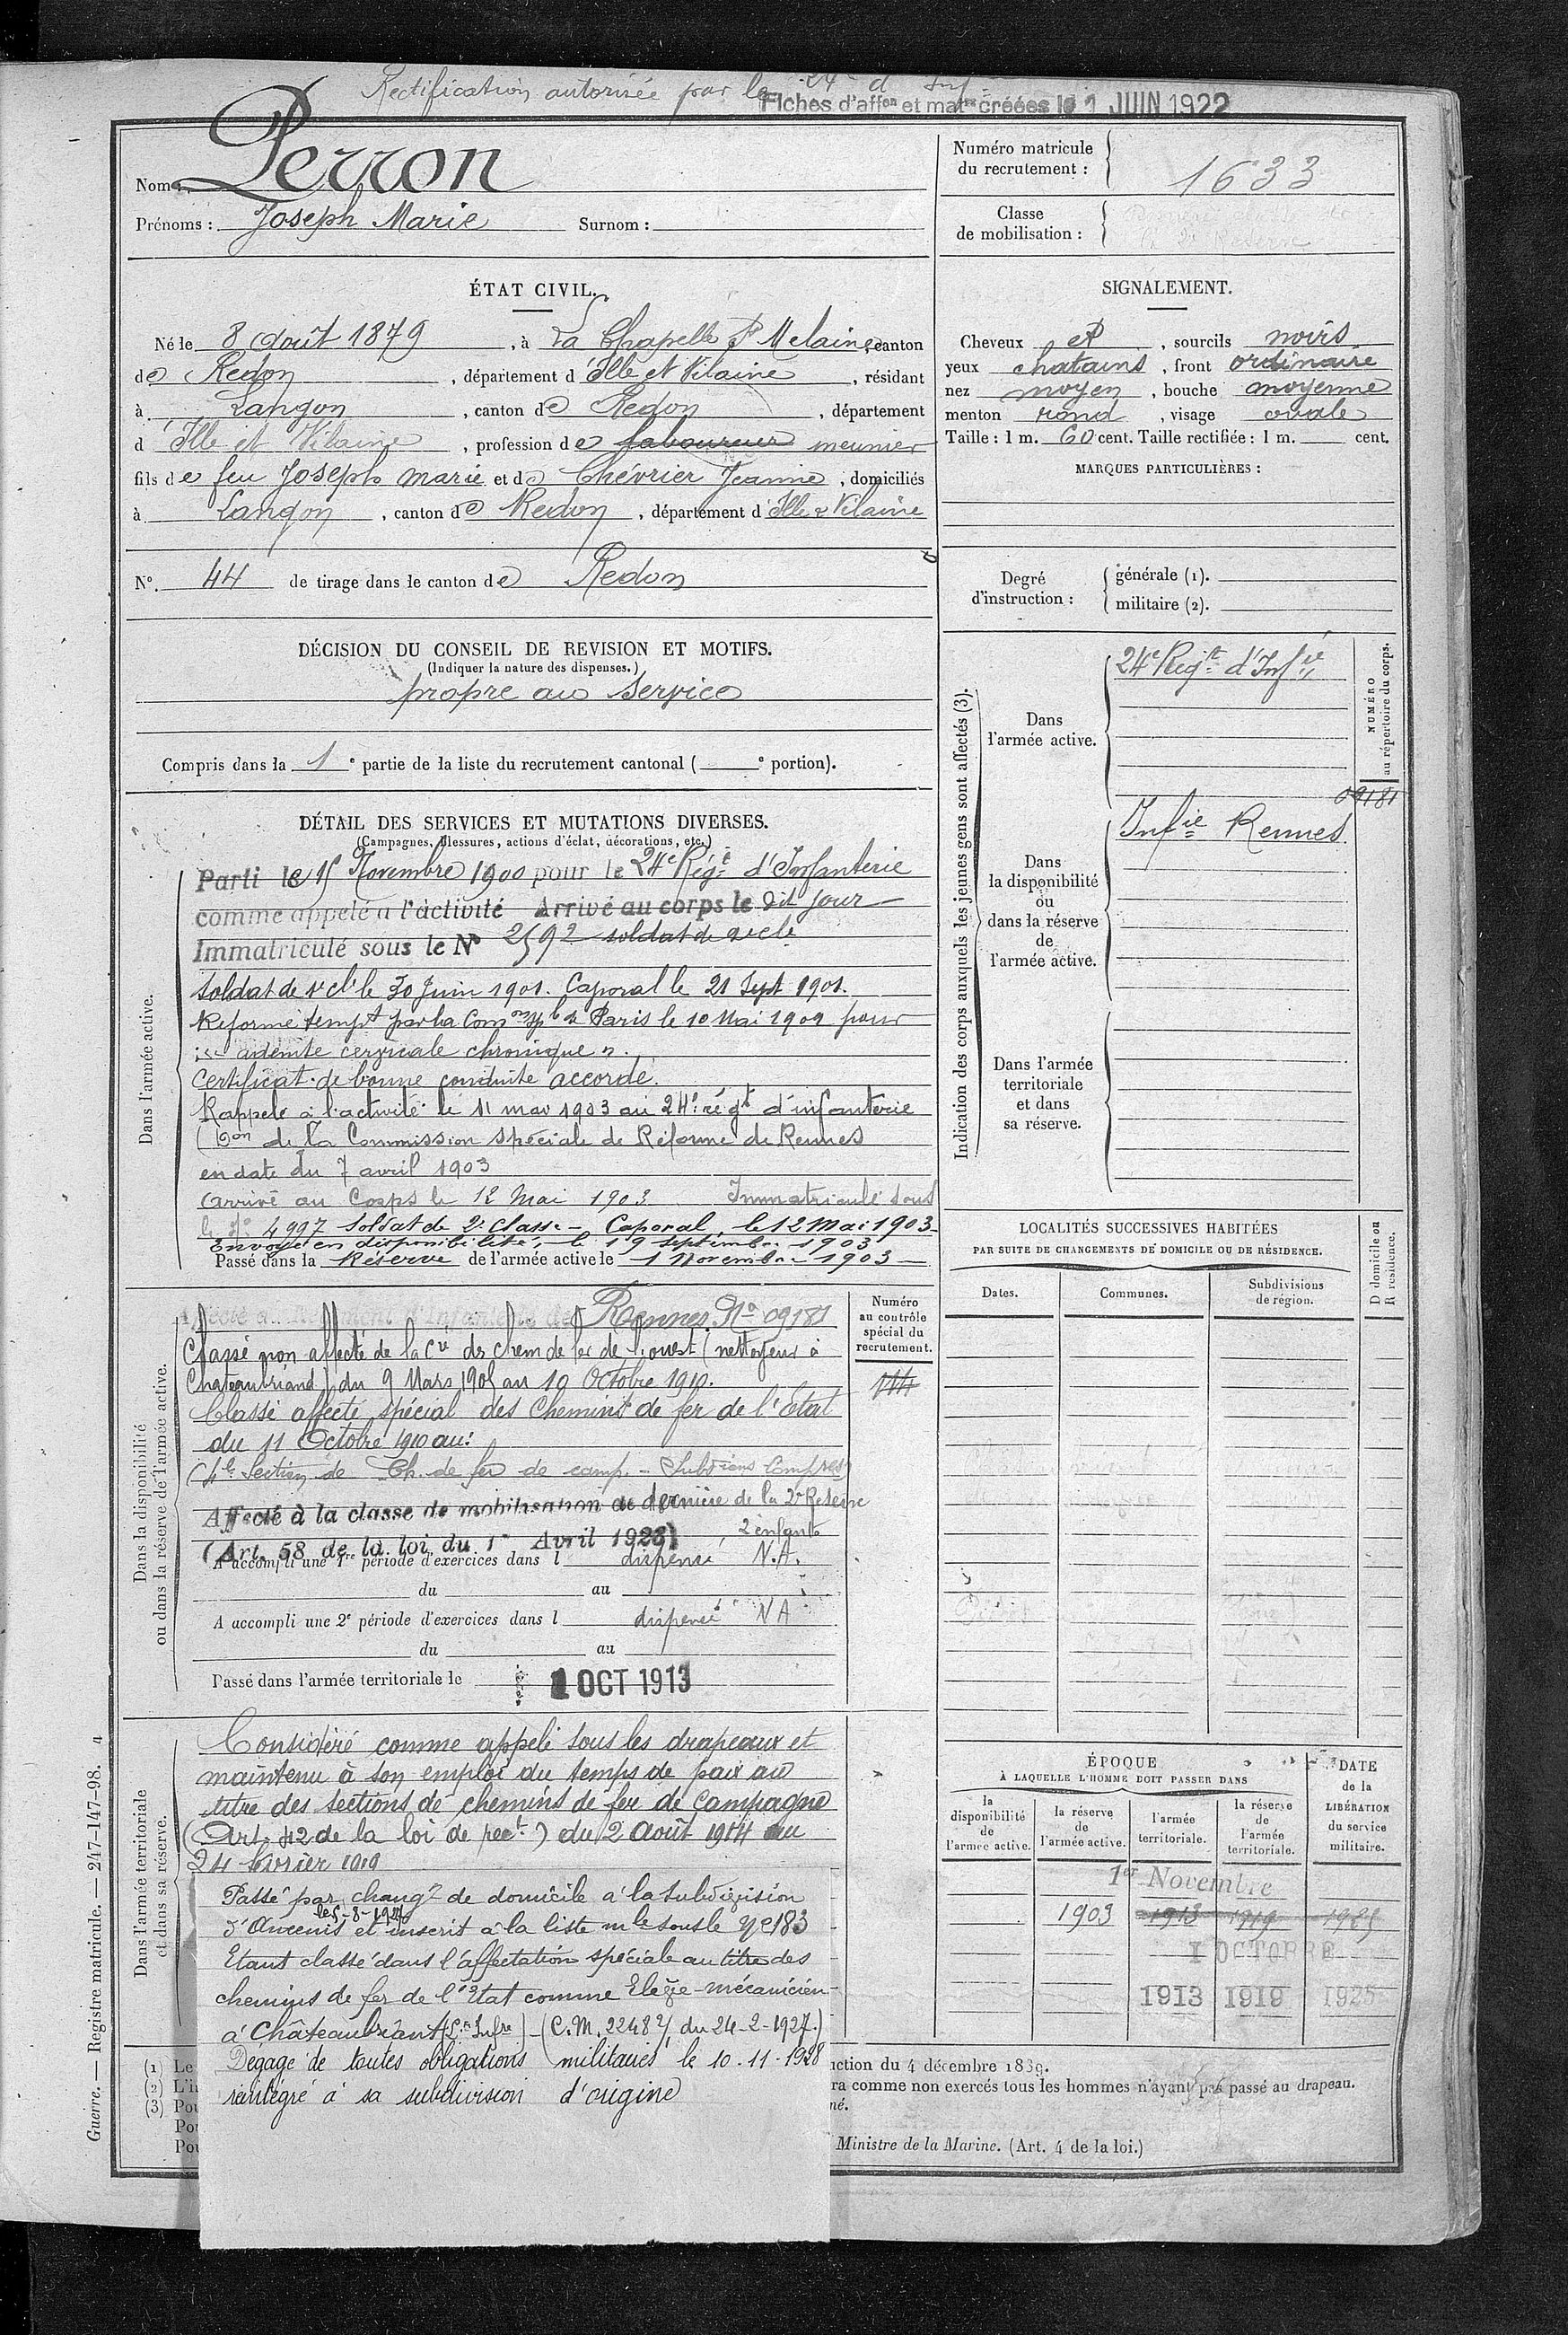 Rectification autorisée par le 24e d'Inf
Fiches d'affon et matre créées le 1 JUIN 1922
Nom : Perron
Prénoms : Joseph Marie Surnom :
Numéro matricule du recrutement : 1633
Classe de mobilisation :
ÉTAT CIVIL.
Né le 8 Août 1879, à La Chapelle St Melaine, canton
de Redon, département d'Ille et Vilaine, résidant
à Langon, canton de Redon, département
d'Ille et Vilaine, profession de laboureur meunier
fils de feu Joseph Marie et de Chévrier Jeanne, domiciliés
à Langon, canton de Redon, département d'Ille & Vilaine
N° 44 de tirage dans le canton de Redon
SIGNALEMENT.
Cheveux et, sourcils noirs
yeux chatains, front ordinaire
nez moyen, bouche moyenne
menton rond, visage ovale
Taille : 1 m. 60 cent. Taille rectifiée : 1 m. cent.
MARQUES PARTICULIÈRES :
Degré d'instruction : générale (1).
militaire (2).
DÉCISION DU CONSEIL DE REVISION ET MOTIFS.
(Indiquer la nature des dispenses.)
propre au service
Compris dans la 1e partie de la liste du recrutement cantonal ( e portion).
DÉTAIL DES SERVICES ET MUTATIONS DIVERSES.
(Campagnes, blessures, actions d'éclat, décorations, etc.)
Dans l'armée active.
Parti le 15 Novembre 1900 pour le 24e Régt d'Infanterie
comme appelé à l'activité Arrivé au corps le dit jour
Immatriculé sous le N° 2592 soldat de 2e cl.
Soldat de 1e cl. le 30 Juin 1901. Caporal le 21 Sept 1901.
Réformé tempt par la Comon spl de Paris le 10 Mai 1902 pour
"adénite cervicale chronique".
Certificat de bonne conduite accordé.
Rappelé à l'activité le 11 mai 1903 au 24e régt d'infanterie
(Don de la Commission spéciale de Réforme de Rennes
en date du 7 avril 1903
Arrivé au Corps le 12 Mai 1903 Immatriculé sous
le N° 4997 Soldat de 2e Classe - Caporal le 12 Mai 1903
Envoyé en disponibilité le 19 septembre 1903
Passé dans la Réserve de l'armée active le 1 Novembre 1903
Indication des corps auxquels les jeunes gens sont affectés (3).
NUMÉRO au répertoire du corps.
Dans l'armée active.
24e Régt d'Infie
09181
Dans la disponibilité ou dans la réserve de l'armée active.
Infie Rennes
Dans l'armée territoriale et dans sa réserve.
Dans la disponibilité ou dans la réserve de l'armée active.
Affecté au Régiment d'Infanterie de Rennes N° 09181
Classé non affecté de la Cie des Chem de fer de l'ouest (nettoyeur à
Chateaubriand) du 9 Mars 1905 au 10 Octobre 1910.
Classé affecté spécial des Chemins de fer de l'Etat
du 11 Octobre 1910 au:
(4e Section de Ch. de fer de camp. - Subdions Compres)
Affecté à la classe de mobilisation de dernière de la 2e Réserve
(Art. 58 de la loi du 1er Avril 1923) 2 enfants
A accompli une 1re période d'exercices dans l dispensé N.A.
du au
A accompli une 2e période d'exercices dans l dispensé N A
du au
Passé dans l'armée territoriale le 1 OCT 1913
Numéro au contrôle spécial du recrutement.
144
LOCALITÉS SUCCESSIVES HABITÉES
PAR SUITE DE CHANGEMENTS DE DOMICILE OU DE RÉSIDENCE.
Dates. Communes. Subdivisions de région. D domicile ou R résidence.
Dans l'armée territoriale et dans sa réserve.
Considéré comme appelé sous les drapeaux et
maintenu à son emploi du temps de paix au
titre des sections de chemins de fer de campagne
(Art. 42 de la loi de rect.) du 2 Août 1914 au
24 février 1919
Passé par changt de domicile à la Subdivision
d'Ancenis le 5-8-1927 et inscrit à la liste mle sous le N° 183
Etant classé dans l'affectation spéciale au titre des
chemins de fer de l'Etat comme Elève-mécanicien
à Châteaubriant (Lre Infre) - (C.M. 2248 2/ du 24-2-1927.)
Dégagé de toutes obligations militaires le 10-11-1928
réintégré à sa subdivision d'origine
ÉPOQUE
À LAQUELLE L'HOMME DOIT PASSER DANS
la disponibilité de l'armée active. la réserve de l'armée active. l'armée territoriale. la réserve de l'armée territoriale.
DATE de la LIBÉRATION du service militaire.
1er Novembre
1903 1913 1919 1925
1 OCTOBRE
1913 1919 1925
(1) Le
(2) L'in
(3) Pou
Pou
Pou
uction du 4 décembre 1889.
ra comme non exercés tous les hommes n'ayant pas passé au drapeau.
né.
Ministre de la Marine. (Art. 4 de la loi.)
Guerre. — Registre matricule. — 247-147-98.